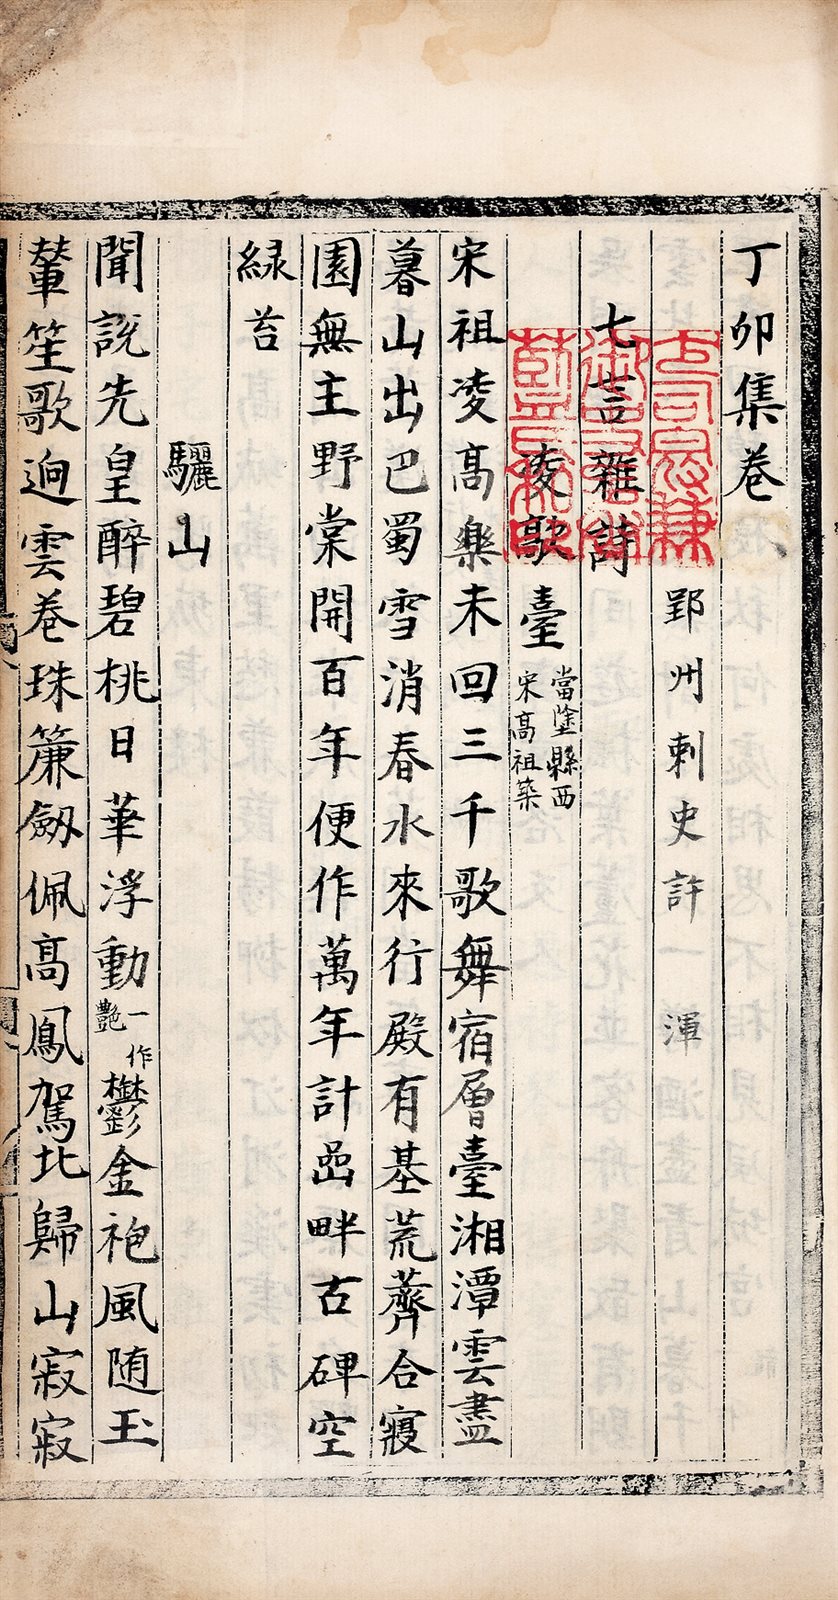 丁卯集卷
郢州刺史許渾
七言雜詩
凌歊臺當塗縣西宋高祖築
宋祖凌高樂未回三千歌舞宿層臺湘潭雲盡
暮山出巴蜀雪消春水來行殿有基荒薺合寢
園無主野棠開百年便作萬年計嵒畔古碑空
緑苔
驪山
聞說先皇醉碧桃日華浮動一作艷鬱金袍風随玉
輦笙歌迥雲卷珠簾劔佩高鳳駕北歸山寂寂